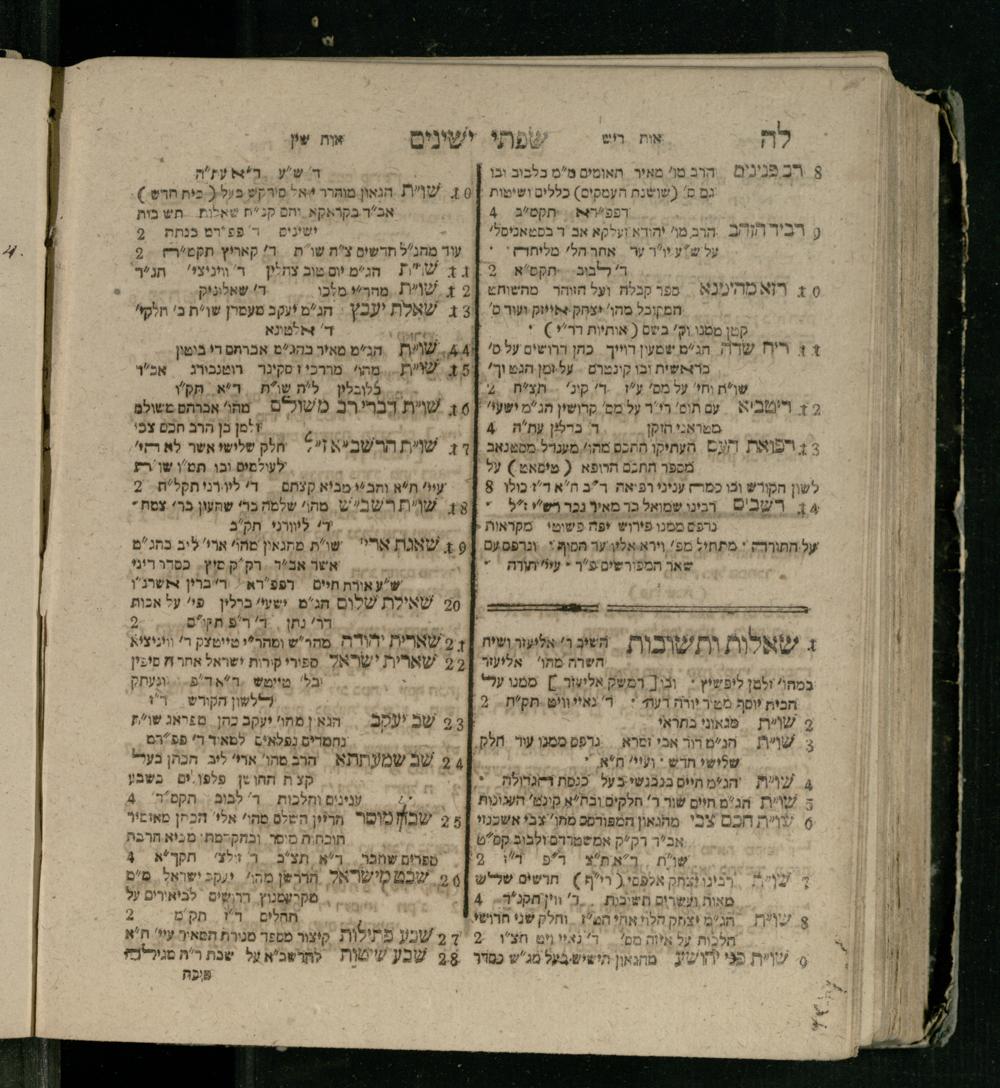 לה אות ריש שפתי ישינים אות שין
8 רב פנינים הרב מו' מאיר תאומים מ"מ בלבוב ובו
גם ס' (שושנת העמקים) כללים ושיטות
דפפ"דא תקמ"ב 4
9 רביד הזהב הרב מו' יהודא זעלקא אב"ד בסטאניסל'
על ש"ע יו"ד עד אחר הל' מליחה
ד' לבוב תקס"א 2
10 רזא מהימנא ספר קבלה ועל הזוהר מהשוחט
המקובל מהו' יצחק אייזק ועוד ס'
קטן ממנו וק' בשם (אותיות דר"י)
11 ריח שדה הג"מ שמעון רוייך כהן דרושים על ס'
בראשית ובו קונטרס על זמן הגט וך'
שו"ת וחי' על מס' ע"ז ד' קינ' תצ"ח 2
12 ריטביא עם תוס' רי"ד על מס' קדושין הג"מ ישעי'
מטראני הזקן ד' ברלין עת"ה 4
13 רפואת העם העתיקו החכם מהו' מענדל מסטנאב
מספר החכם הרופא (טיסאט) על
לשון הקודש ובו כמה עניני רפיאה ד"ב ח"א ד"ז כולו 8
14 רשבים רבינו שמואל בר מאיר נכד רש"י ז"ל
נדפס ממנו פירוש יפה פשוטי מקראות
על התורה מתחיל מפ' וירא אליו עד הסוף ונדפס עם
שאר המפורשים פ"ד עיי' תודה
1 שאלות ותשובות השיב ר' אליעזר ושיח
השדה מהו' אליעזר
במהו' זלמן ליפשיץ ובו [דמשק אליעזר] ממנו על
הבית יוסף מטיר יורה דעה ד' נאיי וויט תק"ח 2
2 שו"ת מגאוני בתראי
3 שו"ת הג"מ דוד אבי זמרא נדפס ממנו עוד חלק
שלישי חדש ועיי' ח"א
4 שו"ת הג"מ חיים בנבנשי בעל כנסת הגדולה
5 שו"ת הג"מ חיים שור ד' חלקים ובח"א קונט' העגונות
6 שו"ת חכם צבי מהגאון המפורסם מהו' צבי אשכנזי
אב"ד דק"ק אמשטרדם ולבוב קם"ט
שו"ת ד"א ת"צ ד"פ ד"ז 2
7 שו"ת רבינו יצחק אלפסי (רי"ף) חדשים שלש
מאות ועשרים תשיבות ד' ווין תקנ"ד 4
8 שו"ת הג"מ יצחק הלוי אחי הט"ז וחלק שני חדושי
הלכות על איזה מס' ד' נאיי ויט תצ"ו 2
9 שו"ת פני יהושע מהגאון הישיש בעל מג"ש כסדר
ד' ש"ע ד"א עת"ה
10 שו"ת הגאון מוהרר יואל סירקש בעל (בית חדש)
אב"ד בקראקא והם קנ"ח שאלות תשיבות
ישינים ד' פפ"דם בנתה 2
עוד מהנ"ל חדשים צ"ח שו"ת ד' קאריץ תקמ"ה 2
11 שו"ת הג"מ יום טוב צהלין ד' וויניצי' תנ"ד
12 שו"ת מהר"י מלכו ד' שאלוניק
13 שאלת יעבץ הג"מ יעקב מעמדן שו"ת ב' חלקי'
ד' אלטונא
44 שו"ת הג"מ מאיר בהג"מ אברהם די בוטון
15 שו"ת מהו' מרדכי זסקינד רוטנבורג אב"ד
בלובלין ל"ח שו"ת ד"א תק"ו
16 שו"ת דברי רב משולם מהו' אברהם משולם
זלמן בן הרב חכם צבי
17 שו"ת הרשב"א ז"ל חלק שלישי אשר לא הי'
לעולמים ובו תמ"ו שו"ת
עיי' ח"א והב"י מביא קצתם ד' ליוורני תקל"ח 2
18 שו"ת רשב"ש מהו' שלמה בר' שמעון בר' צמח
ד' ליוורני תק"ב
19 שאגת ארי' שו"ת מהגאון מהו' ארי' ליב בהג"מ
אשר אב"ד דק"ק מיץ כסדר דיני
ש"ע אורח חיים דפפ"דא ד' ברין אשרנ"ו
20 שאילת שלום הג"מ ישעי' ברלין פי' על אבות
דר' נתן ד' ד"פ תקו"ם 2
21 שארית יהודה מהר"ש ומהר"י טייטצק ד' וויניציא
22 שארית ישראל ספירי קורות ישראל אחר ח סיפין
ובל' טייטש ד"א ד"פ ונעתק
ללשון הקודש ד"ז
23 שב יעקב הגאון מהו' יעקב כהן מפראג שו"ת
נחמדים נפלאים למאוד ד' פפ"דם
24 שב שמעתתא הרב מהו' ארי' ליב הכהן בעל
קצת החושן פלפולים בשבע
ענינים והלכות ד' לבוב תקס"ד 4
25 שבט מוסר הדיין השלם מהו' אלי' הכהן מאזמיר
תוכחה מוסר ובהקדמה מביא הרבה
ספרים שחבר ד"א תצ"ב ד' זולצ' תקך"א 4
26 שבט מישראל הדרשן מהו' יעקב ישראל מ"מ
מקרעמנוץ דרושים לביאורים על
תהלים ד"ז תק"מ 2
27 שבע פתילות קיצור מספר מנורת המאיר עיי' ח"א
28 שבע שיטות להרשב"א על שבת ר"ה מגילה